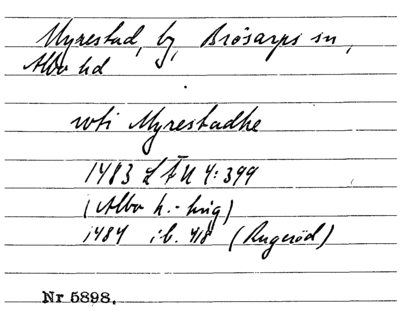 Myrestad, by, Brösarps sn,
Albo hd
uti Myrestadhe
1483 LÄU 4:399
(Albo h.-ting)
1484 ib. 418 (Rugeröd)
Nr 5898.